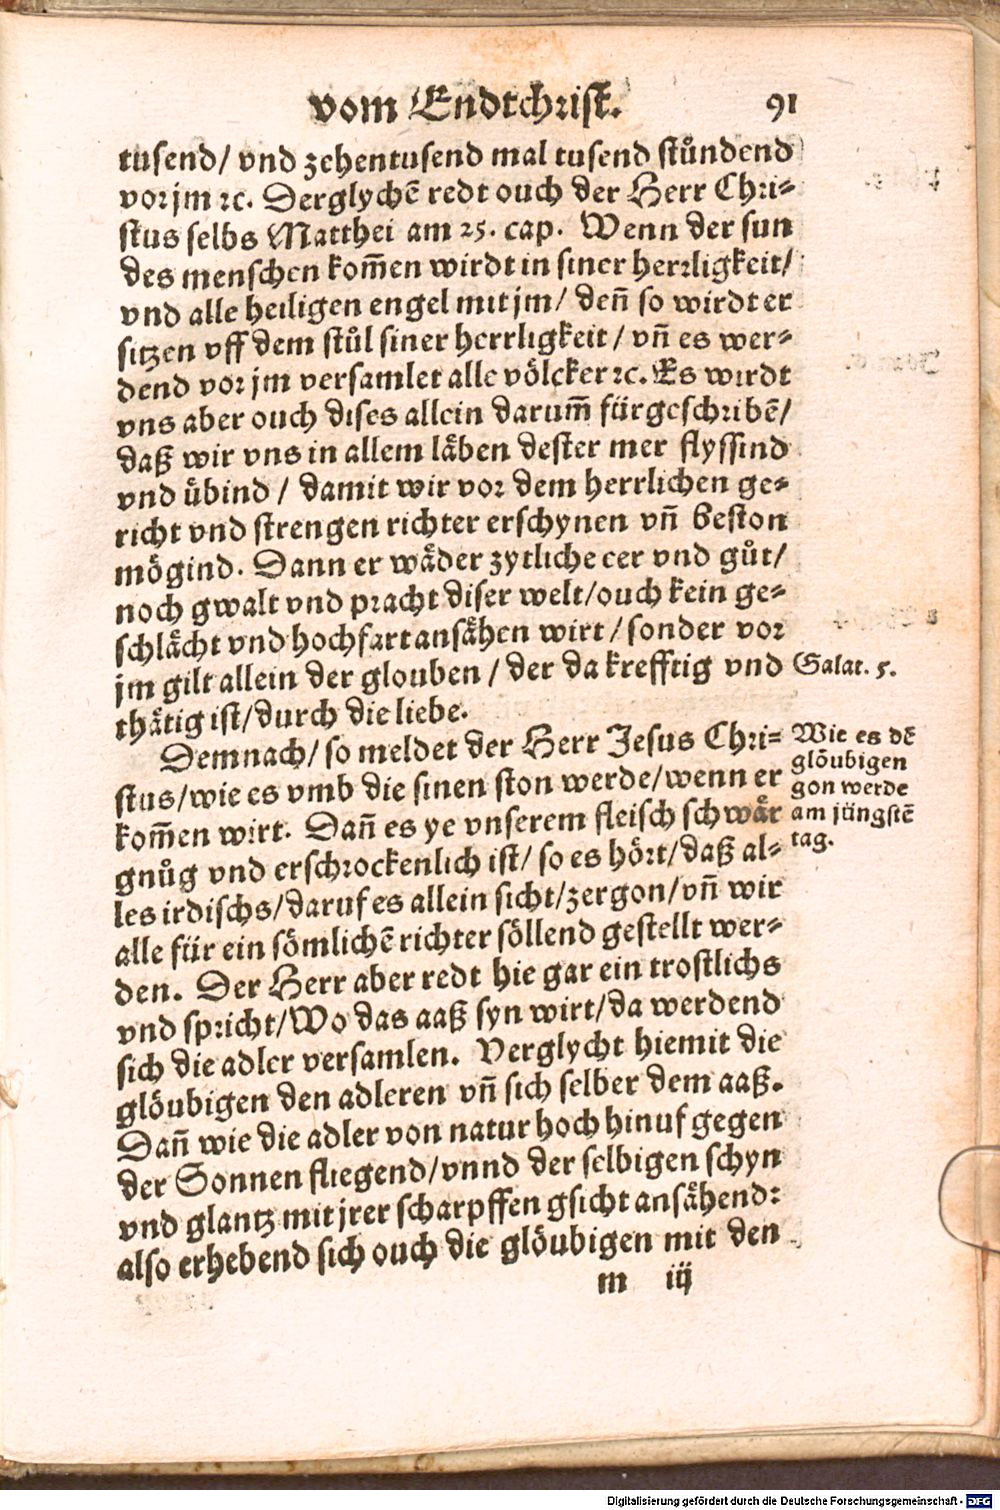 vom Endtchrist. 91
tusend/ vnd zehentusend mal tusend stůndend
vor jm ꝛc. Derglychē redt ouch der Herr Chri⸗
stus selbs Matthei am 25. cap. Wenn der sun
des menschen kom̄en wirdt in siner herrligkeit/
vnd alle heiligen engel mit jm/ den̄ so wirdt er
sitzen vff dem stůl siner herrligkeit/ vn̄ es wer⸗
dend vor jm versamlet alle völcker ꝛc. Es wirdt
vns aber ouch dises allein darum̄ fürgeschribē/
daß wir vns in allem läben dester mer flyssind
vnd übind/ damit wir vor dem herrlichen ge⸗
richt vnd strengen richter erschynen vn̄ beston
mögind. Dann er wäder zytliche eer vnd gůt/
noch gwalt vnd pracht diser welt/ ouch kein ge⸗
schlächt vnd hochfart ansähen wirt/ sonder vor
jm gilt allein der glouben/ der da krefftig vnd
Galat. 5.
thätig ist/ durch die liebe.
Demnach/ so meldet der Herr Jesus Chri⸗
stus/ wie es vmb die sinen ston werde/ wenn er
kom̄en wirt. Dan̄ es ye vnserem fleisch schwär
gnůg vnd erschrockenlich ist/ so es hört/ daß al⸗
les irdischs/ daruf es allein sicht/ zergon/ vn̄ wir
alle für ein sömlichē richter söllend gestellt wer⸗
den. Der Herr aber redt hie gar ein trostlichs
vnd spricht/ Wo das aaß syn wirt/ da werdend
sich die adler versamlen. Verglycht hiemit die
glöubigen den adleren vn̄ sich selber dem aaß.
Dan̄ wie die adler von natur hoch hinuf gegen
der Sonnen fliegend/ vnnd der selbigen schyn
vnd glantz mit jrer scharpffen gsicht ansähend:
also erhebend sich ouch die glöubigen mit den
Wie es dē
glöubigen
gon werde
am jüngstē
tag.
m iij
Digitalisierung gefördert durch die Deutsche Forschungsgemeinschaft - DFG